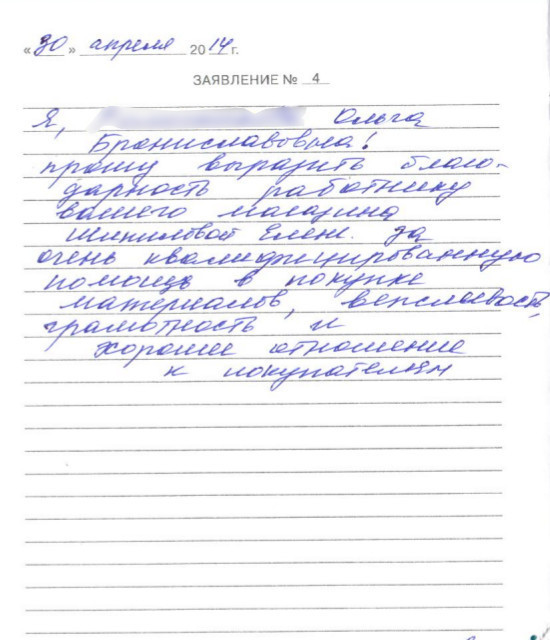 «30» апреля 2014 г.
ЗАЯВЛЕНИЕ № 4
Я, Ольга
Брониславовна!
прошу выразить благо-
дарность работнику
вашего магазина
Шипиловой Елене. за
очень квалифицированную
помощь в покупке
материалов, вежливость,
грамотность и
хорошее отношение
к покупателям